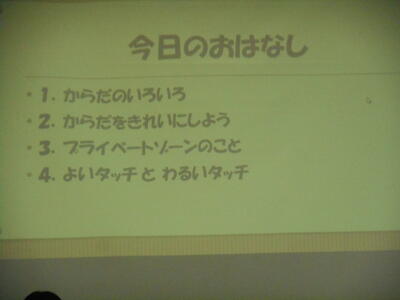 今日のおはなし
• 1. からだのいろいろ
• 2. からだをきれいにしよう
• 3. プライベートゾーンのこと
• 4. よいタッチ と わるいタッチ